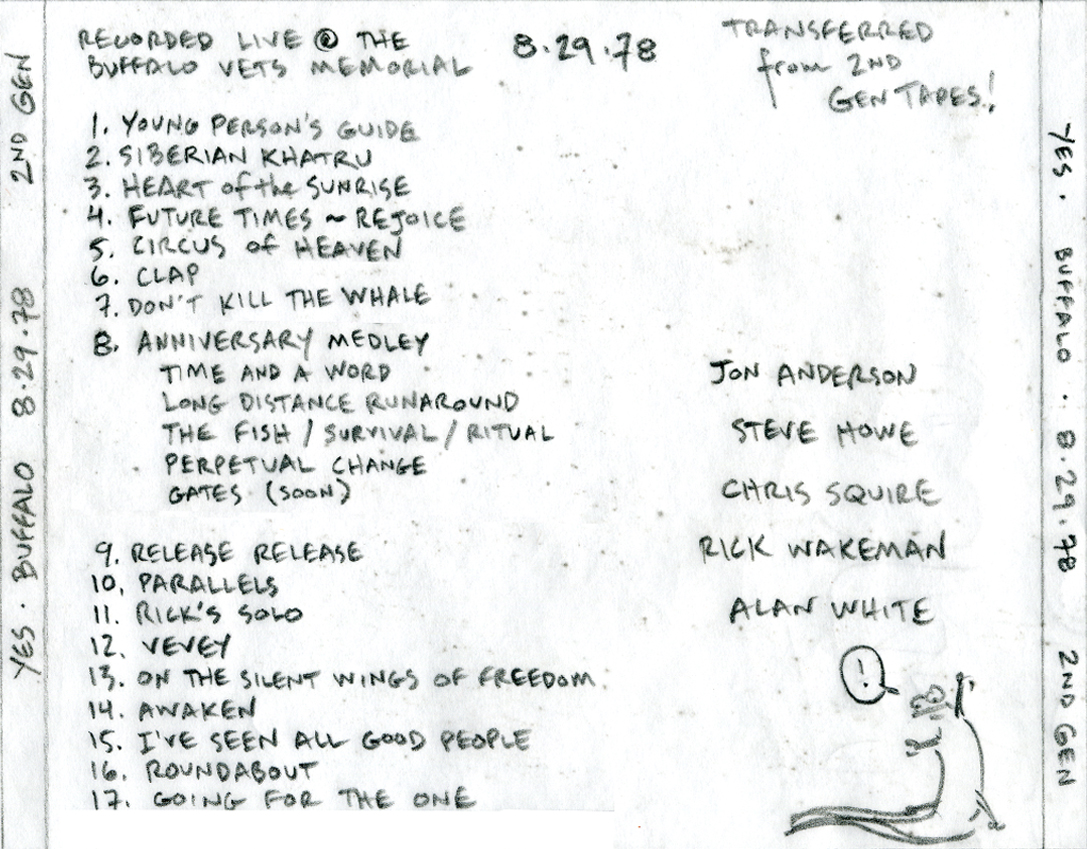 YES · BUFFALO 8·29·78 2ND GEN
RECORDED LIVE @ THE
BUFFALO VETS MEMORIAL
8·29·78
TRANSFERRED
from 2ND
GEN TAPES!
1. YOUNG PERSON'S GUIDE
2. SIBERIAN KHATRU
3. HEART of the SUNRISE
4. FUTURE TIMES ~ REJOICE
5. CIRCUS of HEAVEN
6. CLAP
7. DON'T KILL THE WHALE
8. ANNIVERSARY MEDLEY
TIME AND A WORD
LONG DISTANCE RUNAROUND
THE FISH / SURVIVAL / RITUAL
PERPETUAL CHANGE
GATES (SOON)
9. RELEASE RELEASE
10. PARALLELS
11. RICK'S SOLO
12. VEVEY
13. ON THE SILENT WINGS OF FREEDOM.
14. AWAKEN
15. I'VE SEEN ALL GOOD PEOPLE
16. ROUNDABOUT
17. GOING FOR THE ONE
JON ANDERSON
STEVE HOWE
CHRIS SQUIRE
RICK WAKEMAN
ALAN WHITE
!
YES · BUFFALO · 8·29·78 2ND GEN